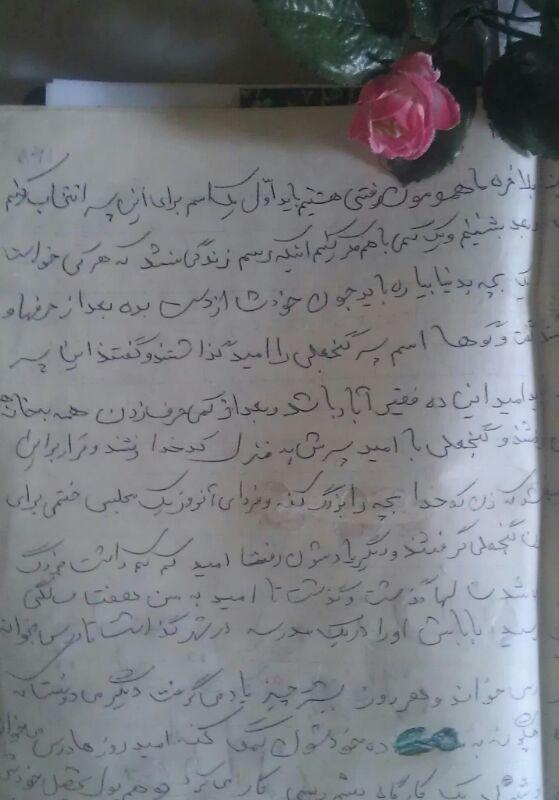 بلاخره ما همومون رفتنی هستیم باید اوّل یک اسم برای این پسر انتخاب کنیم
بعد بشینیم و یک کمی با هم فکر کنیم اینکه رسم زندگی نشد که هر کی خواست
یک بچه بدنیا بیاره باید جون خودشا از دست بده بعد از حرفها و
گفت و گوها اسم پسر گنجعلی را امید گذاشتند و گفتند این پسر
امید این ده فقیر آباد باشد و بعد از کمی حرف زدن همه بخانه
و گنجعلی با امید پسرش به منزل کدخدا رفتند و قرار براین
که زن کدخدا بچه را بزرگ کنه و فردای آنروز یک مجلس ختمی برای
زن گنجعلی گرفتند و دیگر یادشون رفت امید کم کم داشت بزرگ
میشد سالها گذشت و گذشت تا امید به سن هفت سالگی
رسید باباش او را در یک مدرسه در شهر گذاشت تا درس بخواند
می خواند و هر روز بیشتر چیز یاد می گرفت دیگر می دونست که
چگونه به ده خودشون کمک کنه امید روزها درس می خواند
یک کارگاه کار می کرد و هم پول